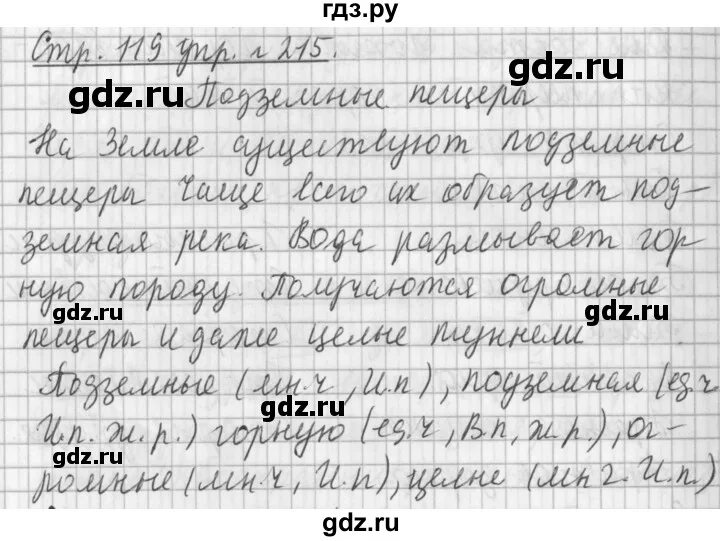 гдз.ру
Стр. 119 упр. № 215.
gdz.ru
gdz.ru
Подземные пещеры
На Земле существуют подземные
пещеры Чаще всего их образует под-
земная река. Вода размывает гор
ную породу. Получаются огромные
gdz.ru
gdz.ru
пещеры и даже целые туннели
Подземные (мн.ч, И.п), подземная (ед.ч
gdz.ru
И.п. ж.р.) горную (ед.ч, В.п, ж.р.), ог-
gdz.ru
ромные (мн.ч, И.п), целые (мн г. И.п.)
gdz.ru